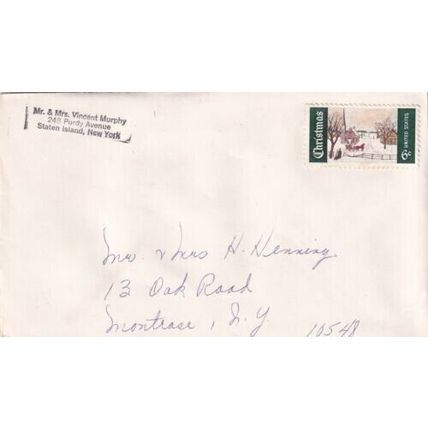 Mr. & Mrs. Vincent Murphy
248 Purdy Avenue
Staten Island, New York
Christmas
6¢ UNITED STATES
Mr. & Mrs H. Henning
13 Oak Road
Montrose, N.Y.
10548